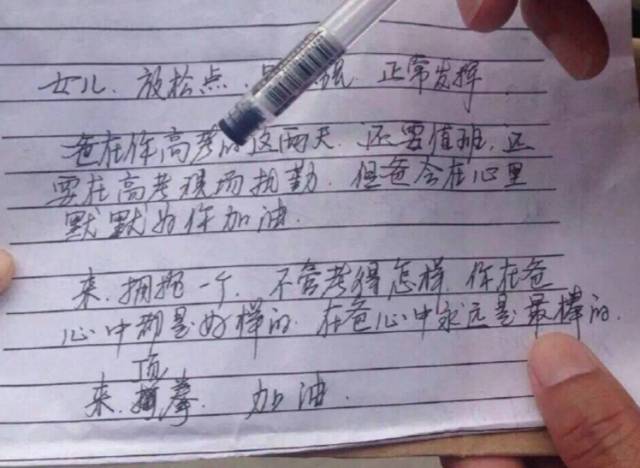 女儿.放松点.正常发挥.
爸在你高考的这两天.还要值班,还
要在高考现场执勤.但爸会在心里
默默为你加油.
来.拥抱一个.不管考得怎样.你在爸
心中都是好样的.在爸心中永远是最棒的.
顶
来.拳. 加油.